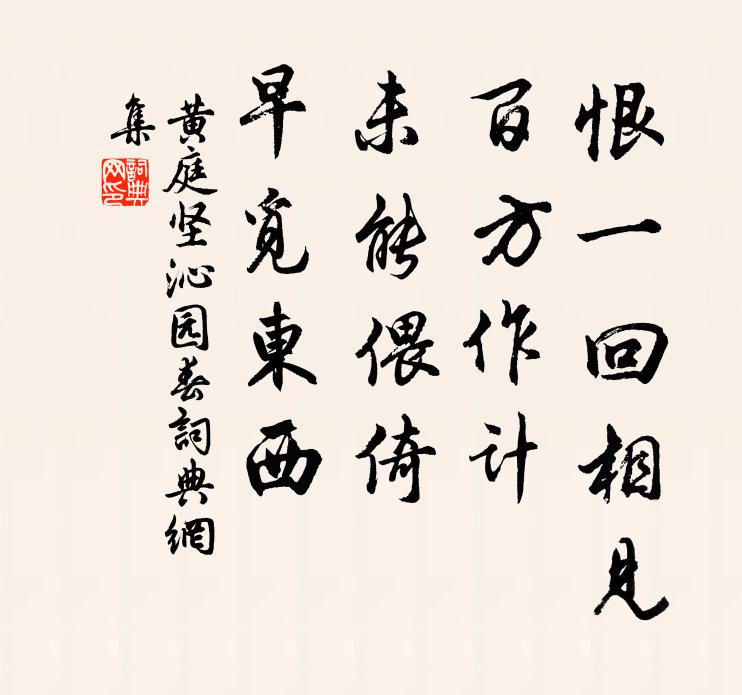 恨一回相見
百方作计
未能偎倚
早覓東西
黄庭坚沁园春詞典網
集
詞典网印